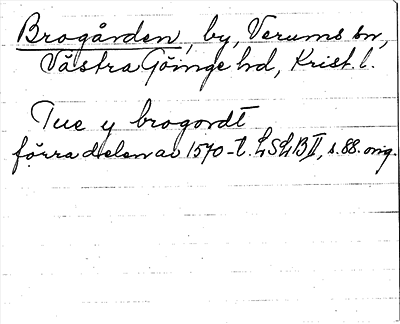 Brogården, by, Verums sn,
Västra Göinge hd, Krist. l.
Tue y brogordt
förra delen av 1570-t. LSLB II, s. 88. orig.